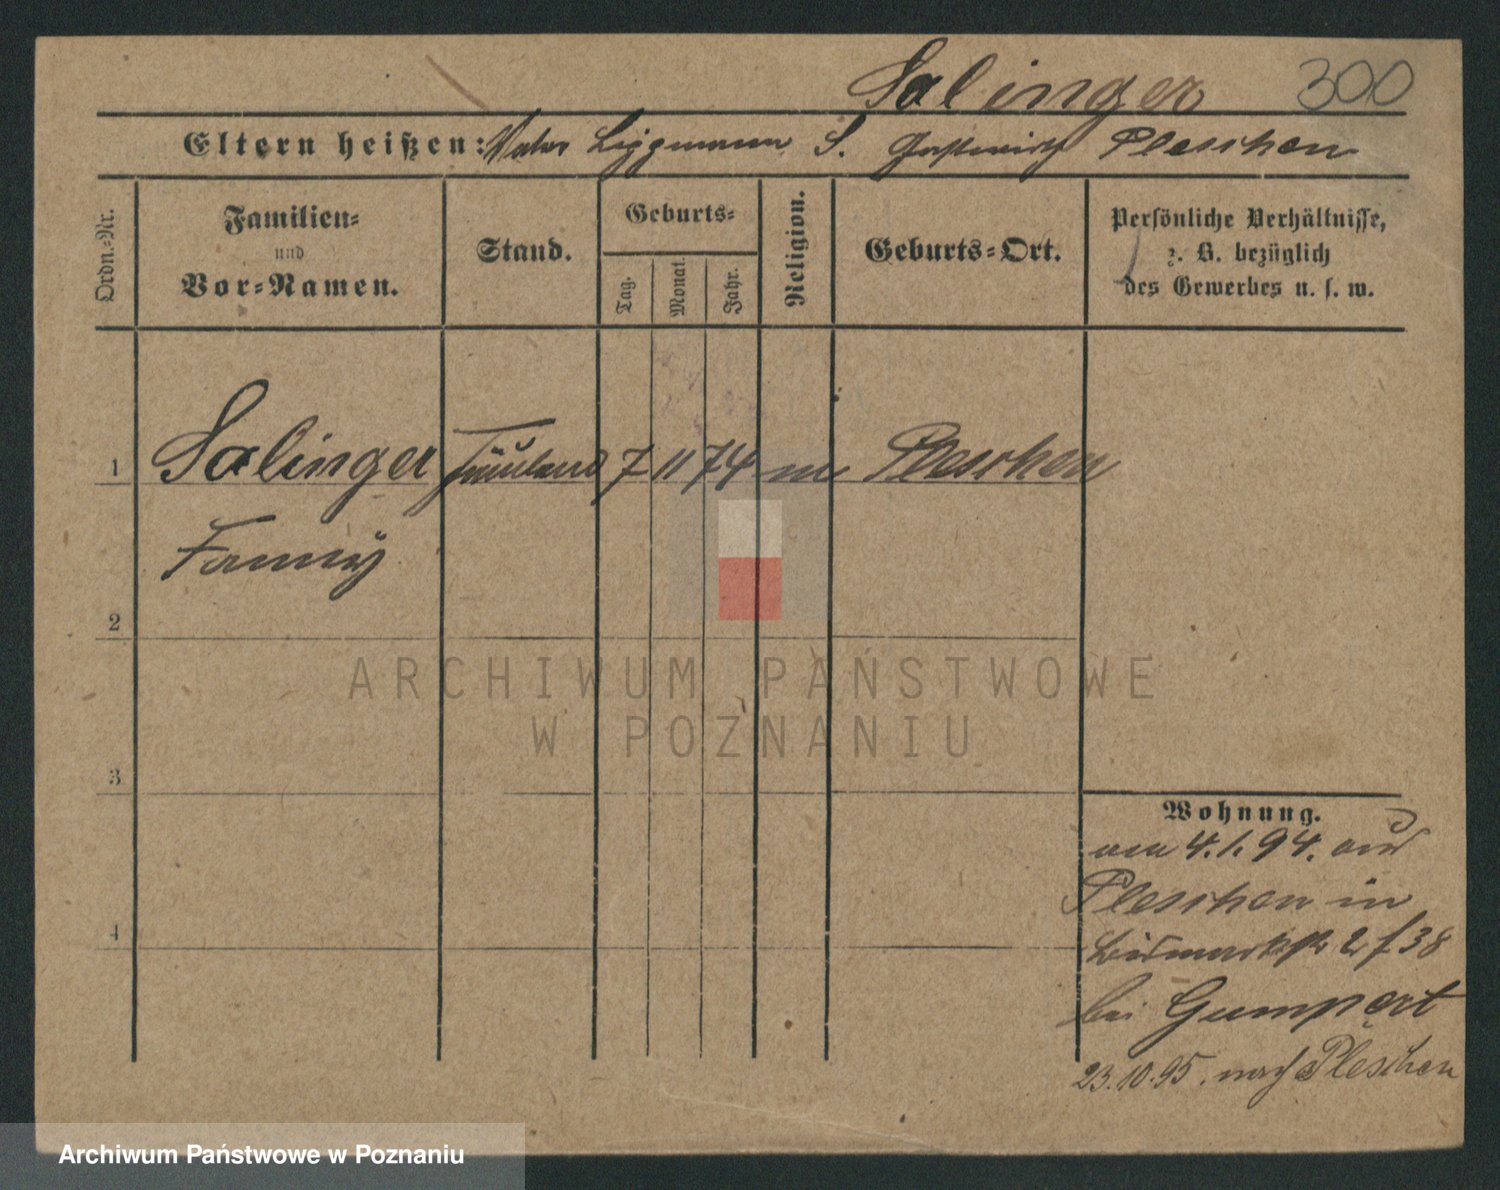 Salinger 300
Eltern heißen: Vater Liggmann S. Gastwirth Pleschen
Ordn.-Nr.
Familien-
und
Vor-Namen.
Stand.
Geburts-
Tag.
Monat.
Jahr.
Religion.
Geburts-Ort.
Persönliche Verhältnisse,
z. B. bezüglich
des Gewerbes u. s. w.
1 Salinger 7 11 74 m Pleschen
Fanny
2
3
4
Wohnung.
am 4.1.94. aus
Pleschen in
Bismarkstr 2 / 38
bei Gumpert
23.10.95. nach Pleschen
ARCHIWUM PAŃSTWOWE
W POZNANIU
Archiwum Państwowe w Poznaniu